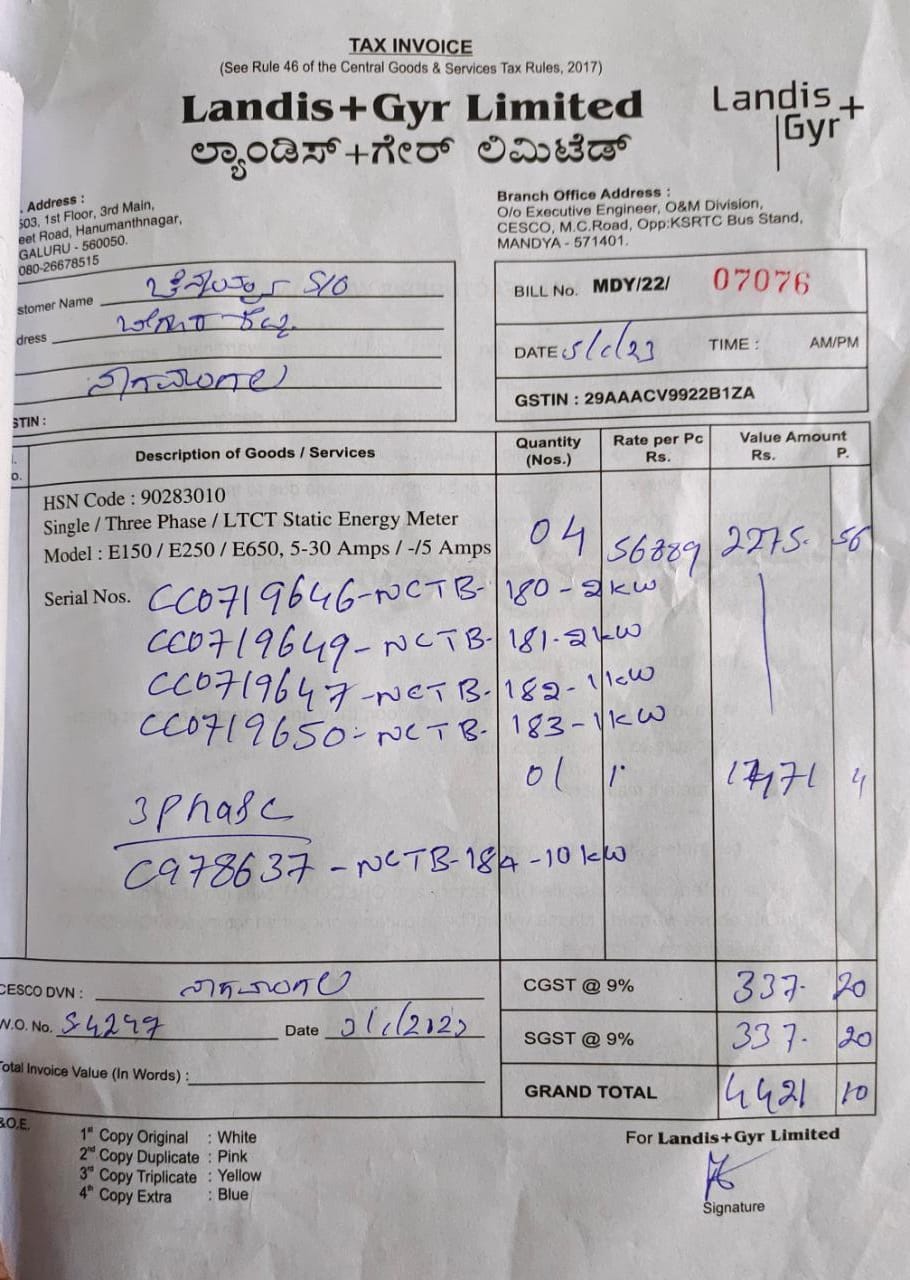 TAX INVOICE
(See Rule 46 of the Central Goods & Services Tax Rules, 2017)
Landis+Gyr Limited
ಲ್ಯಾಂಡಿಸ್+ಗೇರ್ ಲಿಮಿಟೆಡ್
Landis
Gyr+
. Address :
503, 1st Floor, 3rd Main,
eet Road, Hanumanthnagar,
GALURU - 560050.
080-26678515
Branch Office Address :
O/o Executive Engineer, O&M Division,
CESCO, M.C.Road, Opp:KSRTC Bus Stand,
MANDYA - 571401.
stomer Name S/O
dress
STIN :
BILL No. MDY/22/ 07076
DATE 23 TIME : AM/PM
GSTIN : 29AAACV9922B1ZA
o. Description of Goods / Services Quantity (Nos.) Rate per Pc Rs. Value Amount Rs. P.
HSN Code : 90283010
Single / Three Phase / LTCT Static Energy Meter
Model : E150 / E250 / E650, 5-30 Amps / -/5 Amps 04 56889 2275. 56
Serial Nos. CC0719646-NCTB-180-2kW
CC0719649-NCTB-181-2kW
CC0719647-NCTB-182-1kW
CC0719650-NCTB-183-1kW
01
3Phase
C978637-NCTB-184-10kW
CESCO DVN :
CGST @ 9% 337. 20
W.O. No. S4297 Date
SGST @ 9% 337. 20
Total Invoice Value (In Words) :
GRAND TOTAL 4421 10
&O.E.
1st Copy Original : White
2nd Copy Duplicate : Pink
3rd Copy Triplicate : Yellow
4th Copy Extra : Blue
For Landis+Gyr Limited
Signature